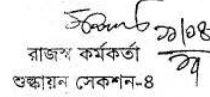 ২১/০৪
রাজস্ব কর্মকর্তা
শুল্কায়ন সেকশন-৪